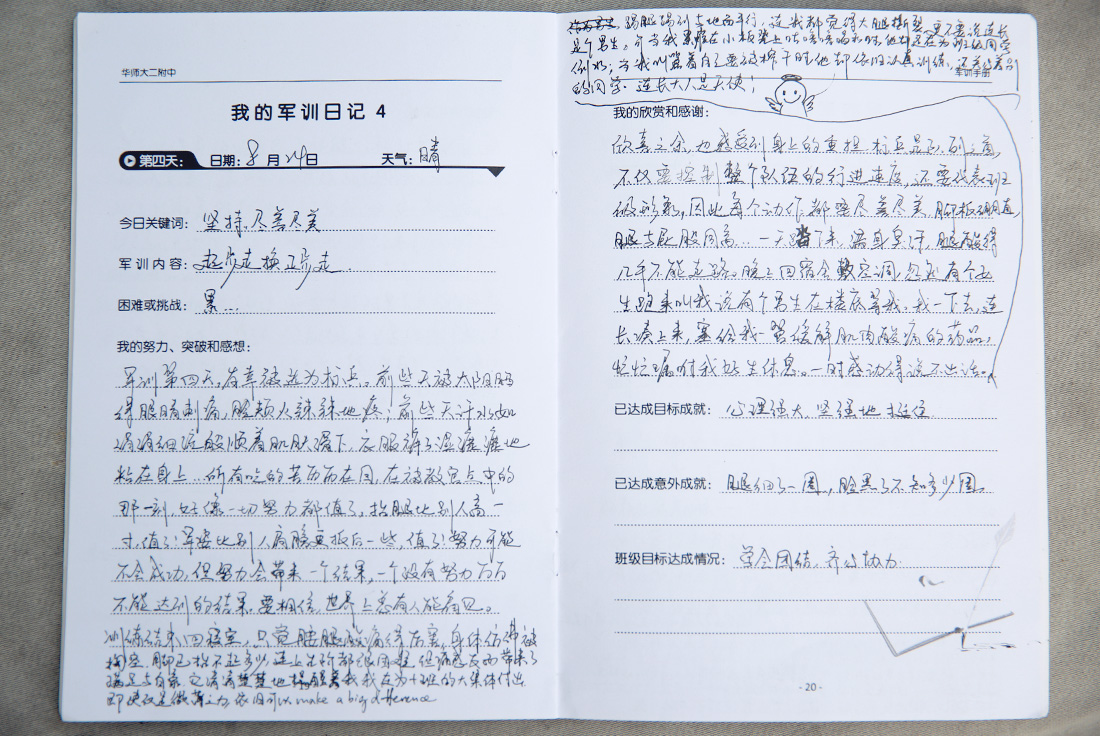 华师大二附中
我的军训日记 4
第四天： 日期：8月24日 天气：晴
今日关键词：坚持，尽善尽美
军训内容：起步走换正步走.
困难或挑战：累…
我的努力、突破和感想：
军训第四天，有幸被选为标兵。前些天被太阳晒
得眼睛刺痛，脸颊火辣辣地疼；前些天汗水如
涓涓细流般顺着肌肤滑下，衣服裤子湿漉漉地
粘在身上…所有吃的苦历历在目，在被教官点中的
那一刻，好像一切努力都值了，抬腿比别人高一
寸，值了！军姿比别人肩膀更板后一些，值了！努力可能
不会成功，但努力会带来一个结果，一个没有努力万万
不能达到的结果。要相信，世界上总有人能看见。
训练结束，回寝室，只觉腿酸痛得厉害，身体仿佛被
掏空，脚已抬不起多少，连上厕所都很困难，但痛感反而带来了
满足与自豪，它清清楚楚地提醒着我，我在为十班的大集体付出
即使仅是微薄之力，依旧可以make a big difference
踢腿踢到与地面平行，连我都觉得大腿撕裂，更不要说连长
是个男生，可当我累瘫在小板凳上时，他却是在为班级同学
例如；当我叫嚣着自己要被榨干时他却依旧认真训练，还关心着别
的同学。连长大人是天使！
军训手册
我的欣赏和感谢：
欣喜之余，也感受到身上的重担，标兵是小列之首，
不仅要控制整个队伍的行进速度，还要代表班
级形象，因此每个动作都要尽善尽美，脚板绷直，
腿与屁股同高…一天踏下来，浑身臭汗，腿酸得
几乎不能走路。晚上回宿舍吹空调，忽然有个女
生跑来叫我说有个男生在楼底等我，我一下去，连
长凑上来，塞给我一管缓解肌肉酸痛的药品，
忙忙嘱咐我好生休息。一时感动得说不出话。
已达成目标成就：心理强大，坚强地挺住
已达成意外成就：腿细了一圈，脸黑了不知多少圈。
班级目标达成情况：学会团结，齐心协力.
- 20 -